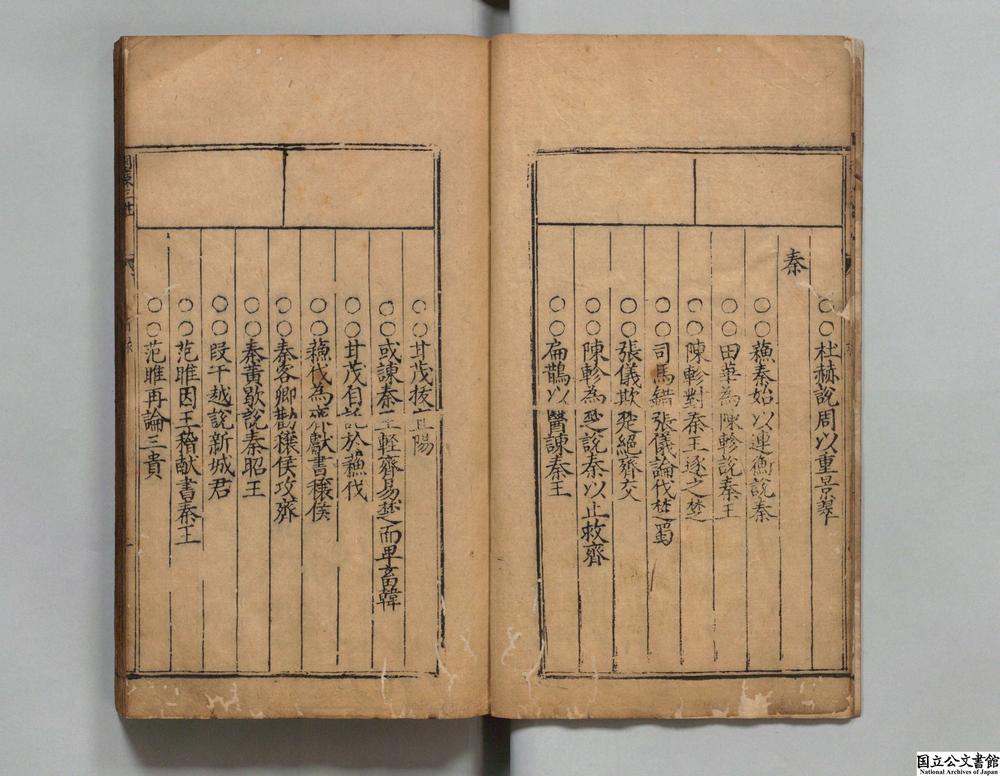 ○○杜赫說周以重景翠
秦
○○蘓秦始以連衡說秦
○○田莘為陳軫說秦王
○○陳軫對秦王逐之楚
○○司馬錯張儀論伐楚蜀
○○張儀欺楚絕齊交
○○陳軫為楚說秦以止救齊
○○扁鵲以醫諫秦王
○○甘茂拔宜陽
○○或諫秦王輕齊易楚而卑畜韓
○○甘茂自託於蘓伐
○○蘓伐為齊獻書穰侯
○○秦客卿勸穰侯攻齊
○○秦黄歇說秦昭王
○○段干越說新城君
○○范睢因王稽献書秦王
○○范睢再論三貴
国立公文書館
National Archives of Japan